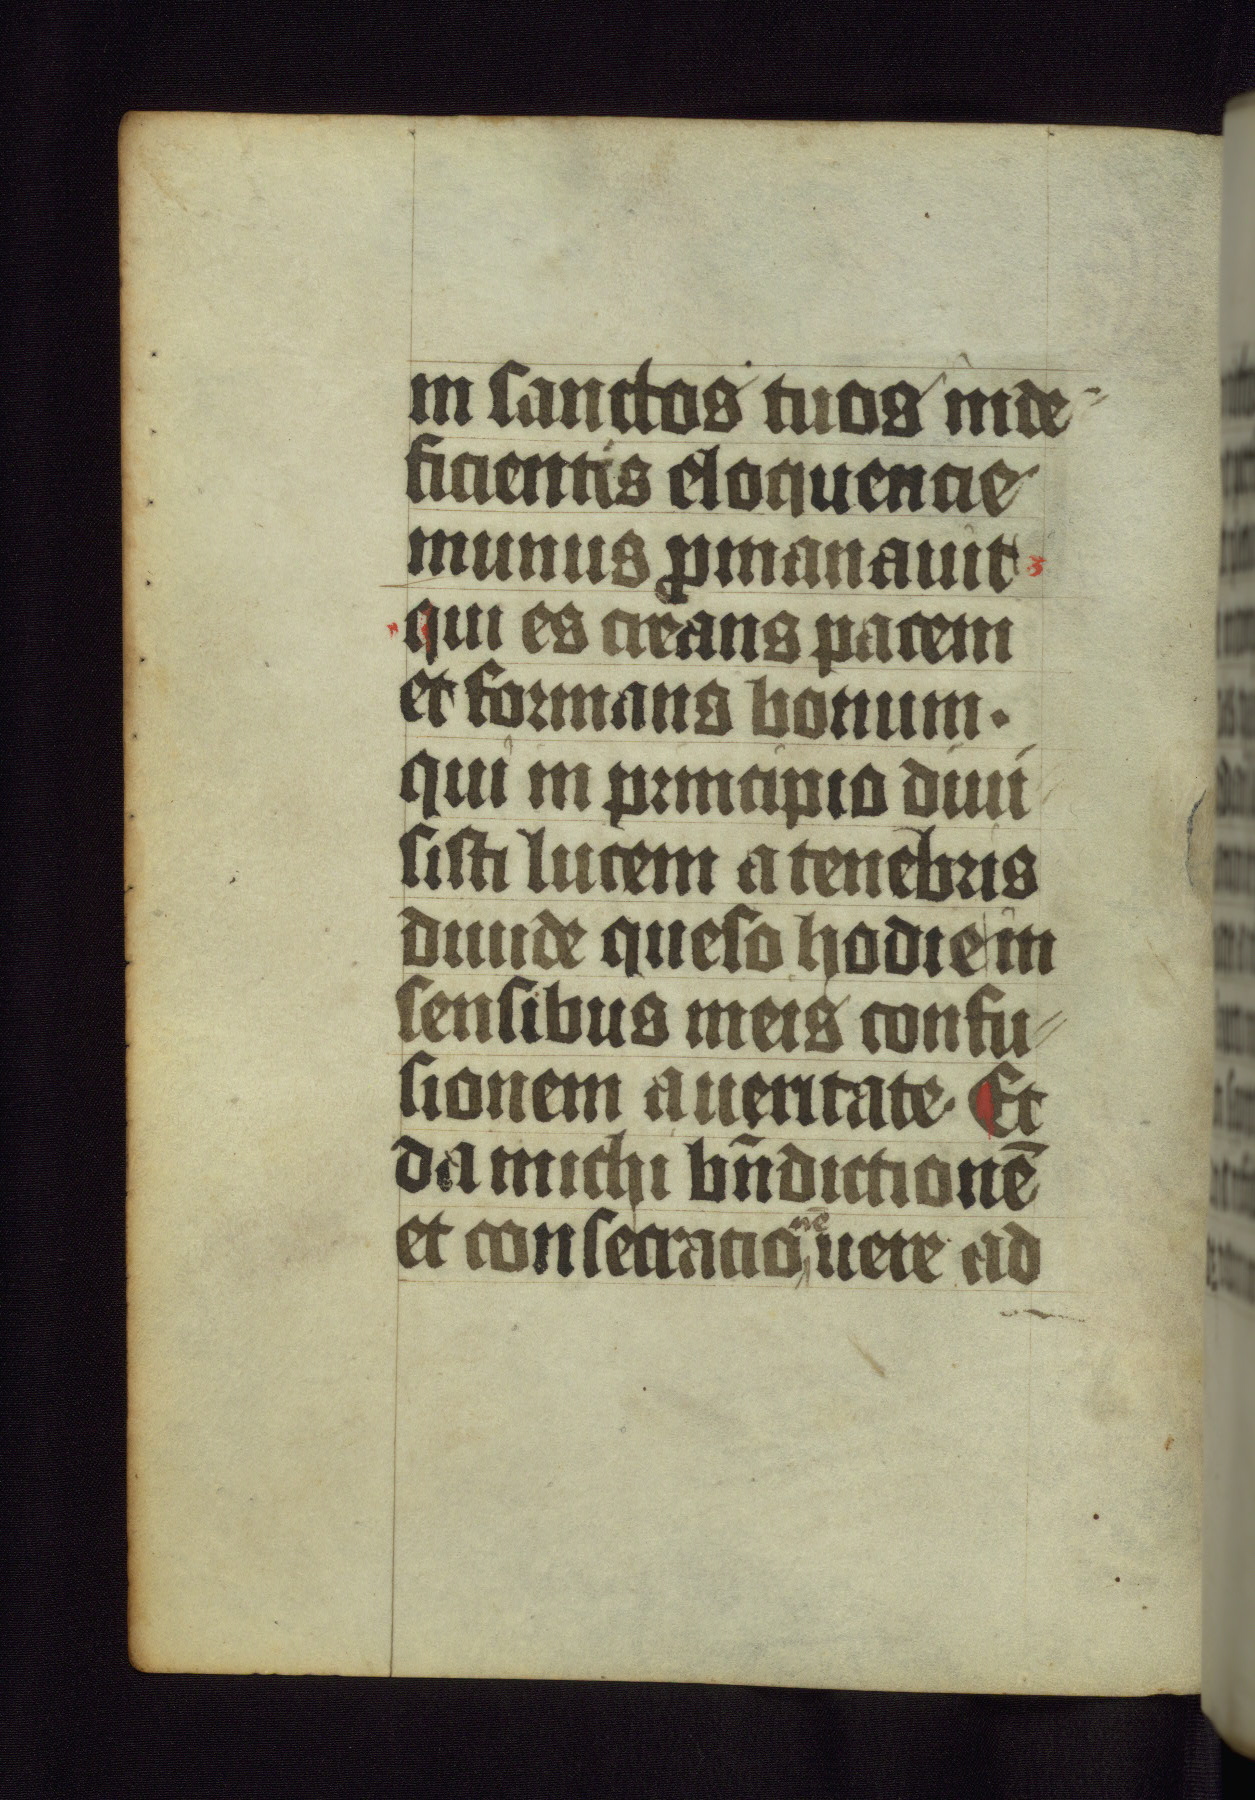 in sanctos tuos inde=
ficientis eloquencie
munus ꝑmanauit
qui es creans pacem
et formans bonum.
qui in principio diui
sisti lucem a tenebris
diuide queso hodie in
sensibus meis confu=
sionem a ueritate. Et
da michi bn̄dictionē
et consecrationē uere ad